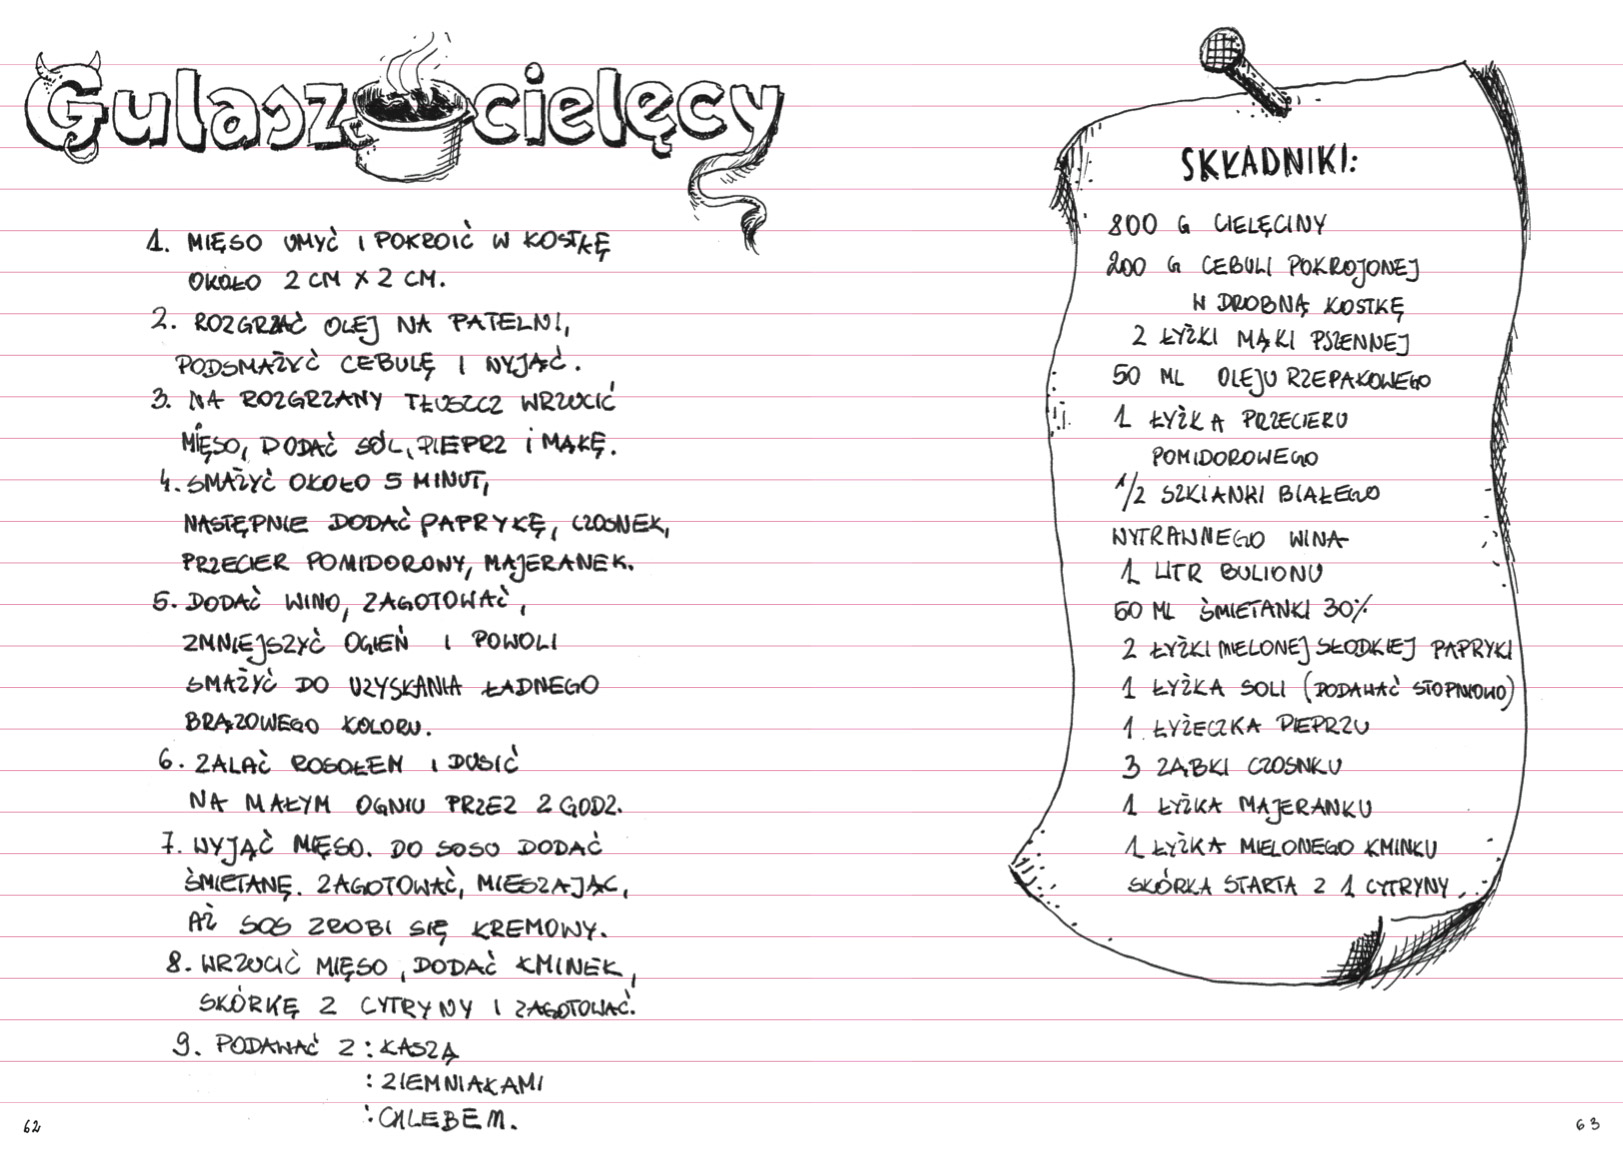 Gulasz cielęcy
1. MIĘSO UMYĆ I POKROIĆ W KOSTKĘ
OKOŁO 2 CM X 2 CM.
2. ROZGRZAĆ OLEJ NA PATELNI,
PODSMAŻYĆ CEBULĘ I WYJĄĆ.
3. NA ROZGRZANY TŁUSZCZ WRZUCIĆ
MIĘSO, DODAĆ SÓL, PIEPRZ I MĄKĘ.
4. SMAŻYĆ OKOŁO 5 MINUT,
NASTĘPNIE DODAĆ PAPRYKĘ, CZOSNEK,
PRZECIER POMIDOROWY, MAJERANEK.
5. DODAĆ WINO, ZAGOTOWAĆ,
ZMNIEJSZYĆ OGIEŃ I POWOLI
SMAŻYĆ DO UZYSKANIA ŁADNEGO
BRĄZOWEGO KOLORU.
6. ZALAĆ ROSOŁEM I DUSIĆ
NA MAŁYM OGNIU PRZEZ 2 GODZ.
7. WYJĄĆ MIĘSO. DO SOSU DODAĆ
ŚMIETANĘ. ZAGOTOWAĆ, MIESZAJĄC,
AŻ SOS ZROBI SIĘ KREMOWY.
8. WRZUCIĆ MIĘSO, DODAĆ KMINEK,
SKÓRKĘ Z CYTRYNY I ZAGOTOWAĆ.
9. PODAWAĆ Z : KASZĄ
: ZIEMNIAKAMI
: CHLEBEM.
62
SKŁADNIKI:
800 G CIELĘCINY
200 G CEBULI POKROJONEJ
W DROBNĄ KOSTKĘ
2 ŁYŻKI MĄKI PSZENNEJ
50 ML OLEJU RZEPAKOWEGO
1 ŁYŻKA PRZECIERU
POMIDOROWEGO
1/2 SZKLANKI BIAŁEGO
WYTRAWNEGO WINA
1 LITR BULIONU
50 ML ŚMIETANKI 30%
2 ŁYŻKI MIELONEJ SŁODKIEJ PAPRYKI
1 ŁYŻKA SOLI (DODAWAĆ STOPNIOWO)
1 ŁYŻECZKA PIEPRZU
3 ZĄBKI CZOSNKU
1 ŁYŻKA MAJERANKU
1 ŁYŻKA MIELONEGO KMINKU
SKÓRKA STARTA Z 1 CYTRYNY
63